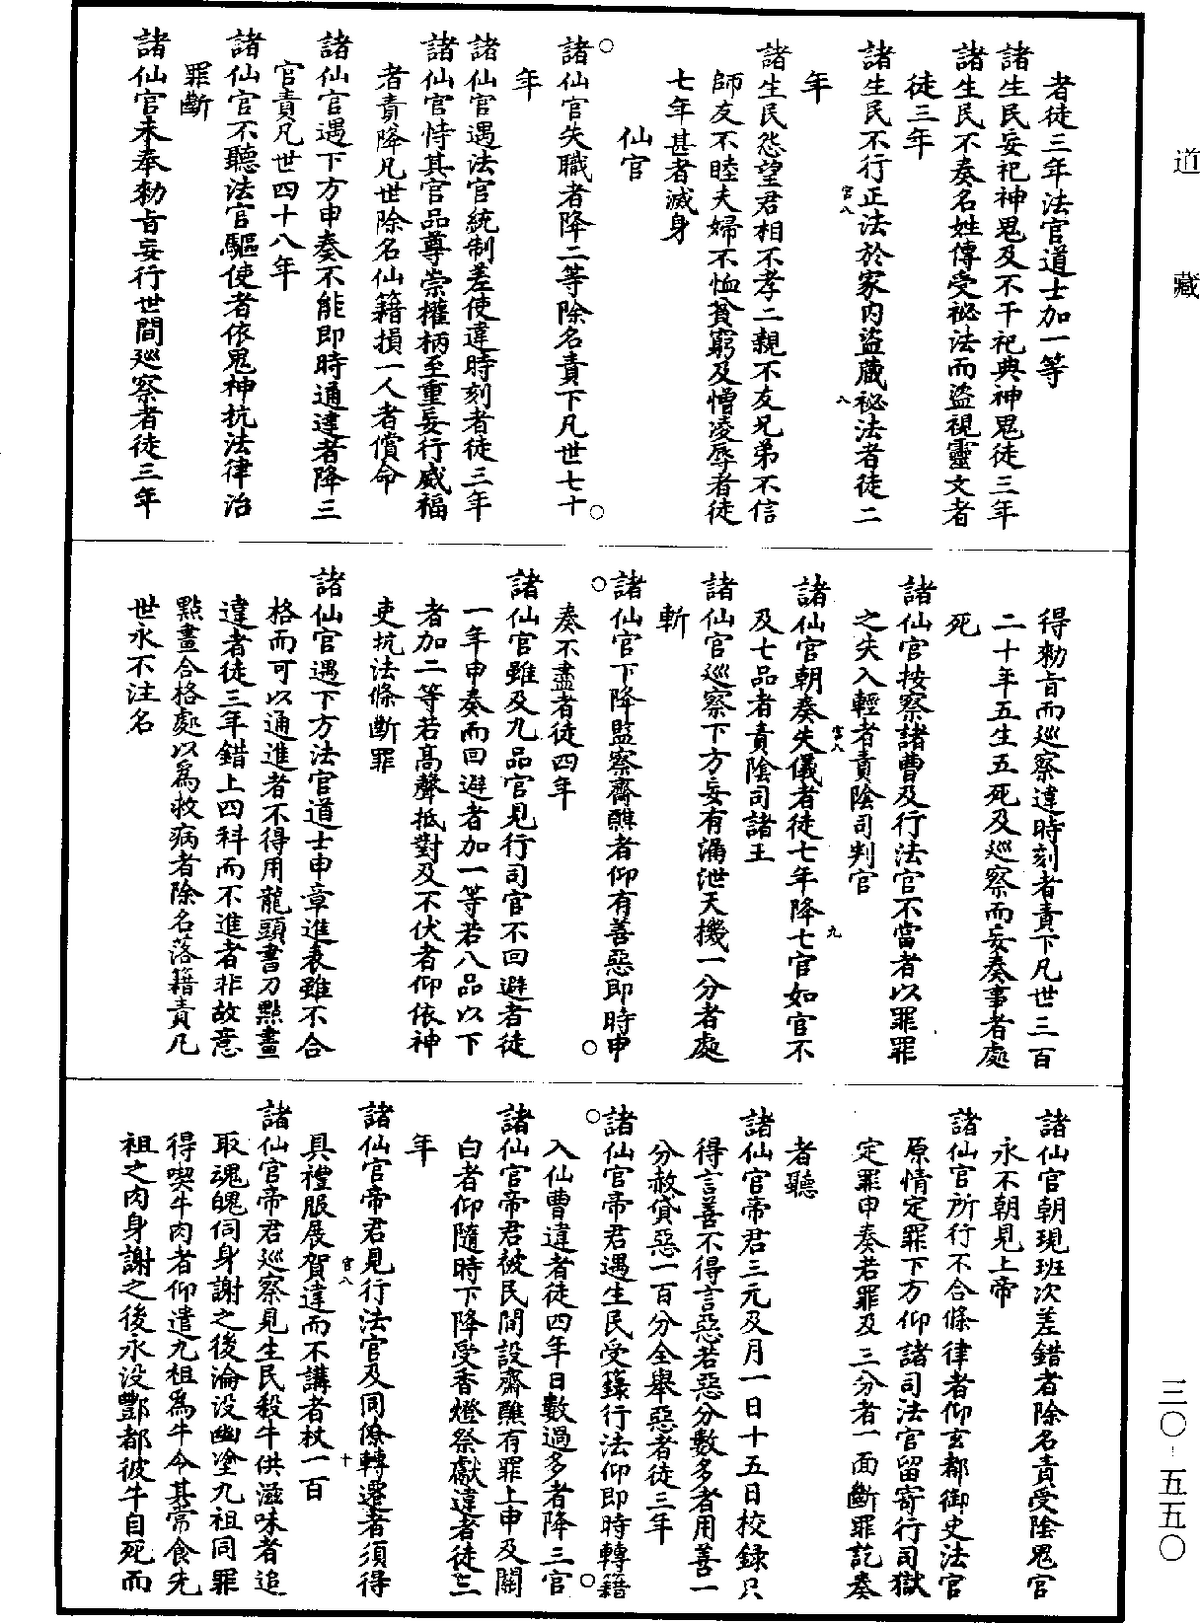 道藏
者徒三年法官道士加一等
諸生民妄祀神鬼及不干祀典神鬼徒三年
諸生民不奏名姓傳受祕法而盜視靈文者
徒三年
諸生民不行正法於家內盜藏祕法者徒二
年
諸生民怨望君相不孝二親不友兄弟不信
師友不睦夫婦不恤貧窮及憎凌辱者徒
七年甚者滅身
仙官
諸仙官失職者降二等除名責下凡世七十
年
諸仙官遇法官統制差使違時刻者徒三年
諸仙官恃其官品尊崇權柄至重妄行威福
者責降凡世除名仙籍損一人者償命
諸仙官遇下方申奏不能即時通達者降三
官責凡世四十八年
諸仙官不聽法官驅使者依鬼神抗法律治
罪斷
諸仙官未奉勑旨妄行世間巡察者徒三年
得勑旨而巡察違時刻者責下凡世三百
二十年五生五死及巡察而妄奏事者處
死
諸仙官按察諸曹及行法官不當者以罪罪
之失入輕者責陰司判官
諸仙官朝奏失儀者徒七年降七官如官不
及七品者責陰司諸王
諸仙官巡察下方妄有漏泄天機一分者處
斬
諸仙官下降監察齋醮者仰有善惡即時申
奏不盡者徒四年
諸仙官雖及九品官見行司官不回避者徒
一年申奏而回避者加一等若八品以下
者加二等若高聲抵對及不伏者仰依神
吏抗法條斷罪
諸仙官遇下方法官道士申章進表雖不合
格而可以通進者不得用龍頭書刀點畫
違者徒三年錯上四科而不進者非故意
點畫合格處以爲救病者除名落籍責凡
世永不注名
諸仙官朝現班次差錯者除名責受陰鬼官
永不朝見上帝
諸仙官所行不合條律者仰玄都御史法官
原情定罪下方仰諸司法官留寄行司獄
定罪申奏若罪及三分者一面斷罪訖奏
者聽
諸仙官帝君三元及月一日十五日校錄只
得言善不得言惡若惡分數多者用善一
分赦貸惡一百分全舉惡者徒三年
諸仙官帝君遇生民受籙行法仰即時轉籍
入仙曹違者徒四年日數過多者降三官
諸仙官帝君被民間設齋醮有罪上申及關
白者仰隨時下降受香燈祭獻違者徒三
年
諸仙官帝君見行法官及同僚轉遷者須得
具禮服展賀違而不講者杖一百
諸仙官帝君巡察見生民殺牛供滋味者追
取魂魄伺身謝之後淪没幽塗九祖同罪
得喫牛肉者仰遣九祖爲牛令其常食先
祖之肉身謝之後永没酆都彼牛自死而
三〇-五五〇